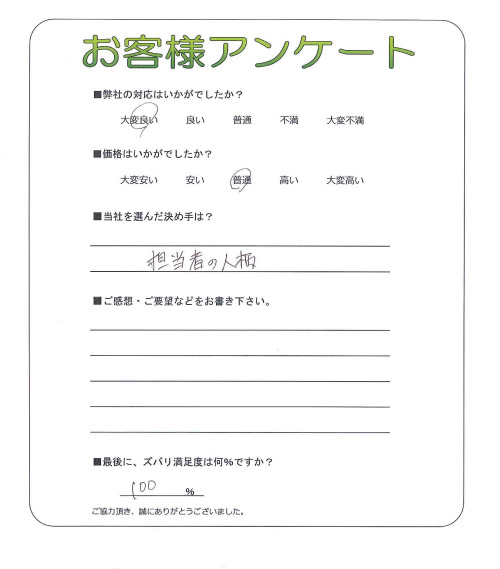 お客様アンケート
■弊社の対応はいかがでしたか？
大変良い 良い 普通 不満 大変不満
■価格はいかがでしたか？
大変安い 安い 普通 高い 大変高い
■当社を選んだ決め手は？
担当者の人柄
■ご感想・ご要望などをお書き下さい。
■最後に、ズバリ満足度は何%ですか？
100 %
ご協力頂き、誠にありがとうございました。